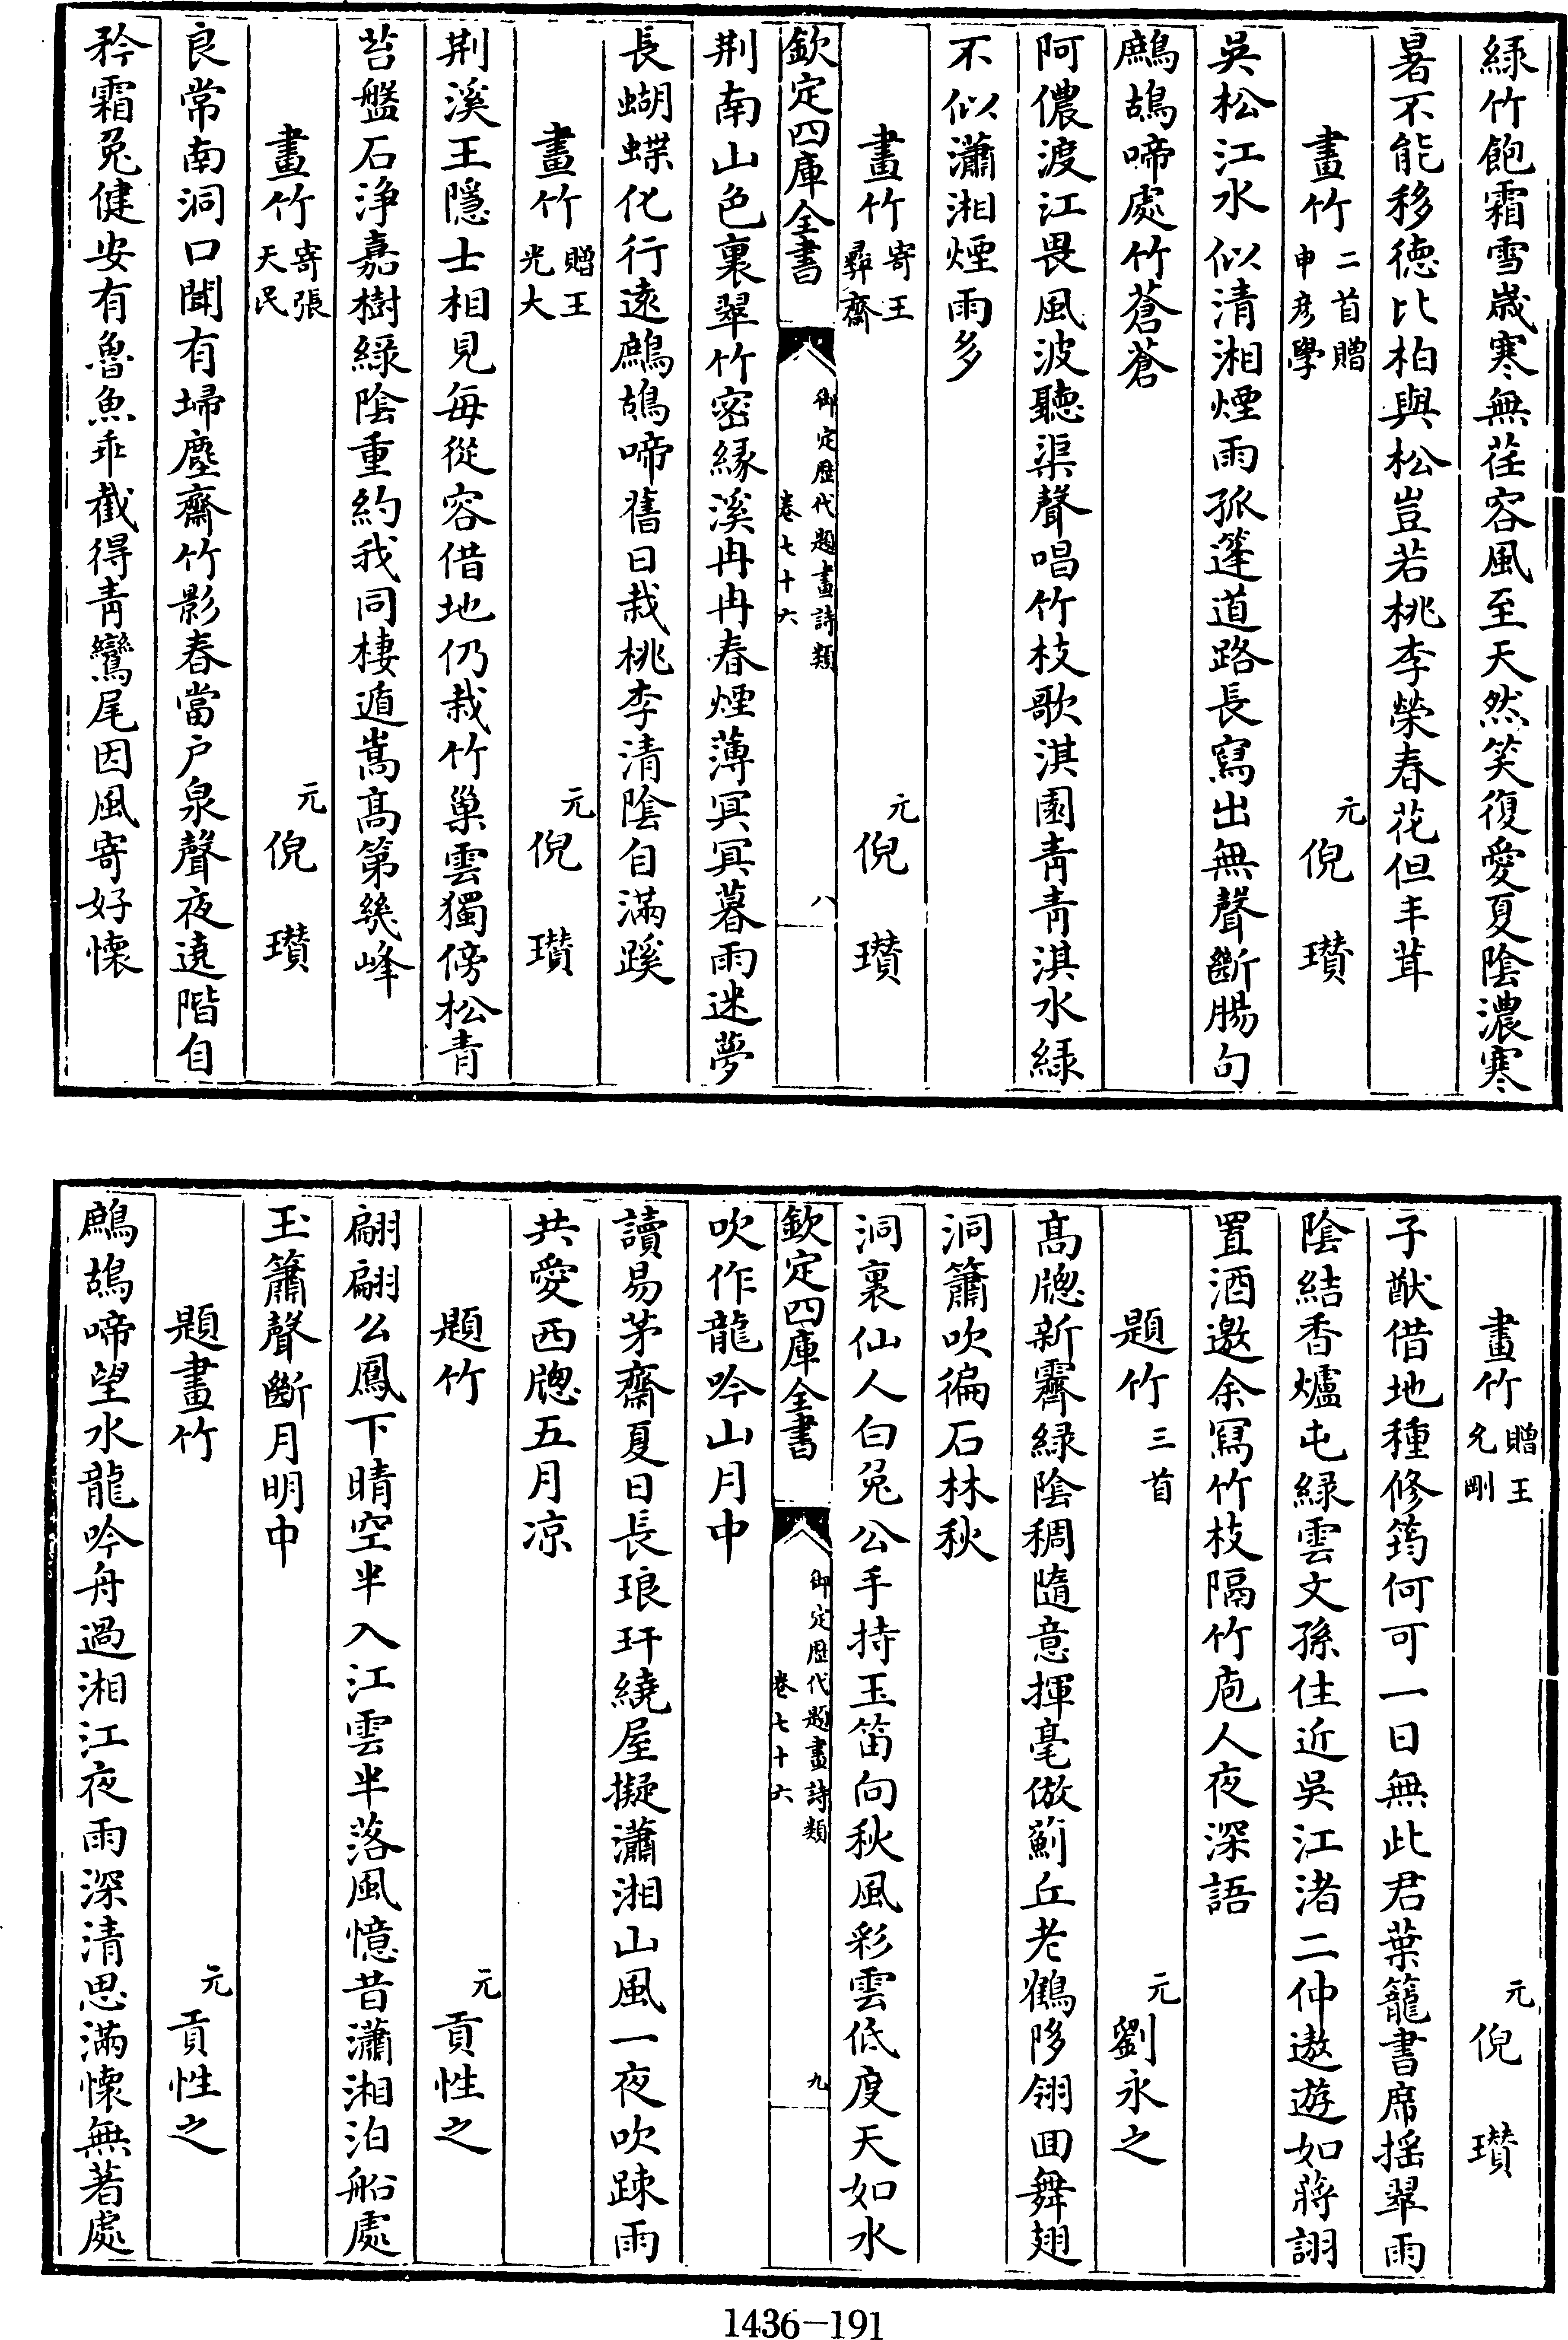 綠竹飽霜雪歲寒無荏容風至天然笑復愛夏陰濃寒
暑不能移德比柏與松豈若桃李榮春花但丰茸
畫竹二首贈申彥學 元倪瓚
吳松江水似清湘煙雨孤篷道路長寫出無聲斷腸句
鷓鴣啼處竹蒼蒼
阿儂渡江畏風波聽渠聲唱竹枝歌淇園青青淇水綠
不似瀟湘煙雨多
畫竹寄王彝齋 元倪瓚
欽定四庫全書 御定歷代題畫詩類卷七十六 八
荆南山色裏翠竹密緣溪冉冉春煙薄冥冥暮雨迷夢
長蝴蝶化行遠鷓鴣啼舊日栽桃李清陰自滿蹊
畫竹贈王光大 元倪瓚
荆溪王隱士相見每從容借地仍栽竹巢雲獨傍松青
苔盤石淨嘉樹綠陰重約我同棲遁嵩高第幾峰
畫竹寄張天民 元倪瓚
良常南洞口聞有埽塵齋竹影春當户泉聲夜遶階自
矜霜兔健安有魯魚乖截得青鸞尾因風寄好懷
畫竹贈王允剛 元倪瓚
子猷借地種修筠何可一日無此君葉籠書席摇翠雨
陰結香爐屯綠雲文孫住近吳江渚二仲遨遊如蔣詡
置酒邀余寫竹枝隔竹庖人夜深語
題竹三首 元劉永之
高牕新霽綠陰稠隨意揮毫倣薊丘老鶴移翎囬舞翅
洞簫吹徧石林秋
洞裏仙人白兔公手持玉笛向秋風彩雲低度天如水
欽定四庫全書 御定歷代題畫詩類卷七十六 九
吹作龍吟山月中
讀易茅齋夏日長琅玕繞屋擬瀟湘山風一夜吹踈雨
共愛西牕五月凉
題竹 元貢性之
翩翩公鳳下晴空半入江雲半落風憶昔瀟湘泊船處
玉簫聲斷月明中
題畫竹 元貢性之
鷓鴣啼望水龍吟舟過湘江夜雨深清思滿懷無著處
1436-191